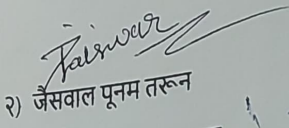 Jaiswar
२) जैसवाल पूनम तरून